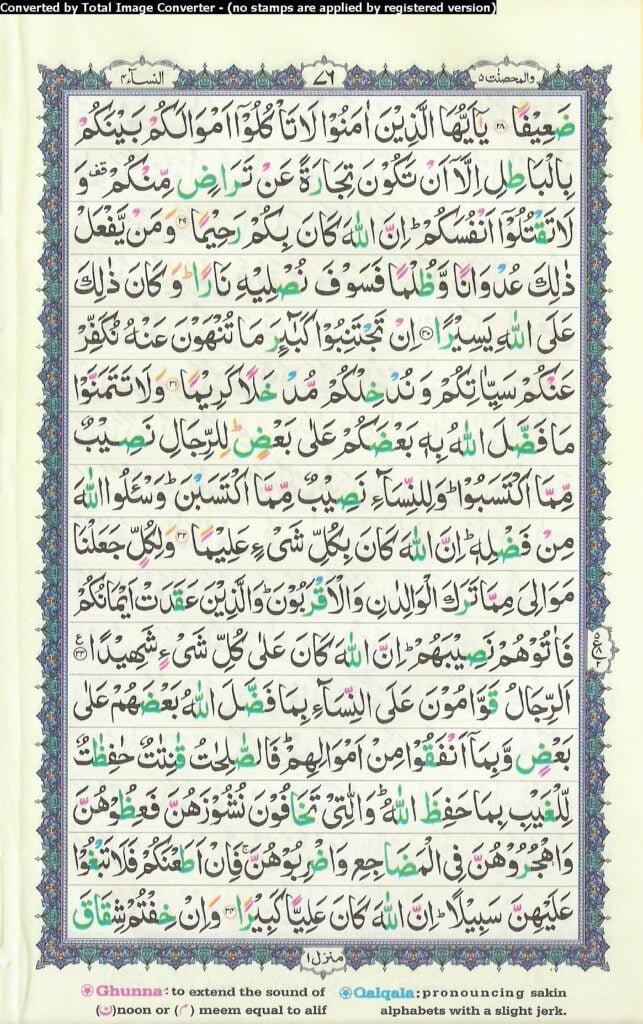 Converted by Total Image Converter - (no stamps are applied by registered version)
والمحصنت ۵
۷۶
النسآء ۴
ضَعِيْفًا ۝۲۸ يٰۤاَيُّهَا الَّذِيْنَ اٰمَنُوْا لَا تَاْكُلُوْۤا اَمْوَالَكُمْ بَيْنَكُمْ
بِالْبَاطِلِ اِلَّاۤ اَنْ تَكُوْنَ تِجَارَةً عَنْ تَرَاضٍ مِّنْكُمْ قف وَ
لَا تَقْتُلُوْۤا اَنْفُسَكُمْ ؕ اِنَّ اللّٰهَ كَانَ بِكُمْ رَحِيْمًا ۝۲۹ وَ مَنْ يَّفْعَلْ
ذٰلِكَ عُدْوَانًا وَّ ظُلْمًا فَسَوْفَ نُصْلِيْهِ نَارًا ؕ وَ كَانَ ذٰلِكَ
عَلَى اللّٰهِ يَسِيْرًا ۝۳۰ اِنْ تَجْتَنِبُوْا كَبَآئِرَ مَا تُنْهَوْنَ عَنْهُ نُكَفِّرْ
عَنْكُمْ سَيِّاٰتِكُمْ وَ نُدْخِلْكُمْ مُّدْخَلًا كَرِيْمًا ۝۳۱ وَلَا تَتَمَنَّوْا
مَا فَضَّلَ اللّٰهُ بِهٖ بَعْضَكُمْ عَلٰى بَعْضٍ ؕ لِلرِّجَالِ نَصِيْبٌ
مِّمَّا اكْتَسَبُوْا ؕ وَلِلنِّسَآءِ نَصِيْبٌ مِّمَّا اكْتَسَبْنَ ؕ وَسْـَٔلُوا اللّٰهَ
مِنْ فَضْلِهٖ ؕ اِنَّ اللّٰهَ كَانَ بِكُلِّ شَىْءٍ عَلِيْمًا ۝۳۲ وَلِكُلٍّ جَعَلْنَا
مَوَالِىَ مِمَّا تَرَكَ الْوَالِدٰنِ وَالْاَقْرَبُوْنَ ؕ وَالَّذِيْنَ عَقَدَتْ اَيْمَانُكُمْ
فَاٰتُوْهُمْ نَصِيْبَهُمْ ؕ اِنَّ اللّٰهَ كَانَ عَلٰى كُلِّ شَىْءٍ شَهِيْدًا ۝۳۳
اَلرِّجَالُ قَوّٰمُوْنَ عَلَى النِّسَآءِ بِمَا فَضَّلَ اللّٰهُ بَعْضَهُمْ عَلٰى
بَعْضٍ وَّ بِمَاۤ اَنْفَقُوْا مِنْ اَمْوَالِهِمْ ؕ فَالصّٰلِحٰتُ قٰنِتٰتٌ حٰفِظٰتٌ
لِّلْغَيْبِ بِمَا حَفِظَ اللّٰهُ ؕ وَالّٰتِىْ تَخَافُوْنَ نُشُوْزَهُنَّ فَعِظُوْهُنَّ
وَاهْجُرُوْهُنَّ فِى الْمَضَاجِعِ وَاضْرِبُوْهُنَّ ۚ فَاِنْ اَطَعْنَكُمْ فَلَا تَبْغُوْا
عَلَيْهِنَّ سَبِيْلًا ؕ اِنَّ اللّٰهَ كَانَ عَلِيًّا كَبِيْرًا ۝۳۴ وَاِنْ خِفْتُمْ شِقَاقَ
۵
ع ۸
۲
منزل ۱
Ghunna: to extend the sound of
(ن)noon or (م) meem equal to alif
Qalqala: pronouncing sakin
alphabets with a slight jerk.